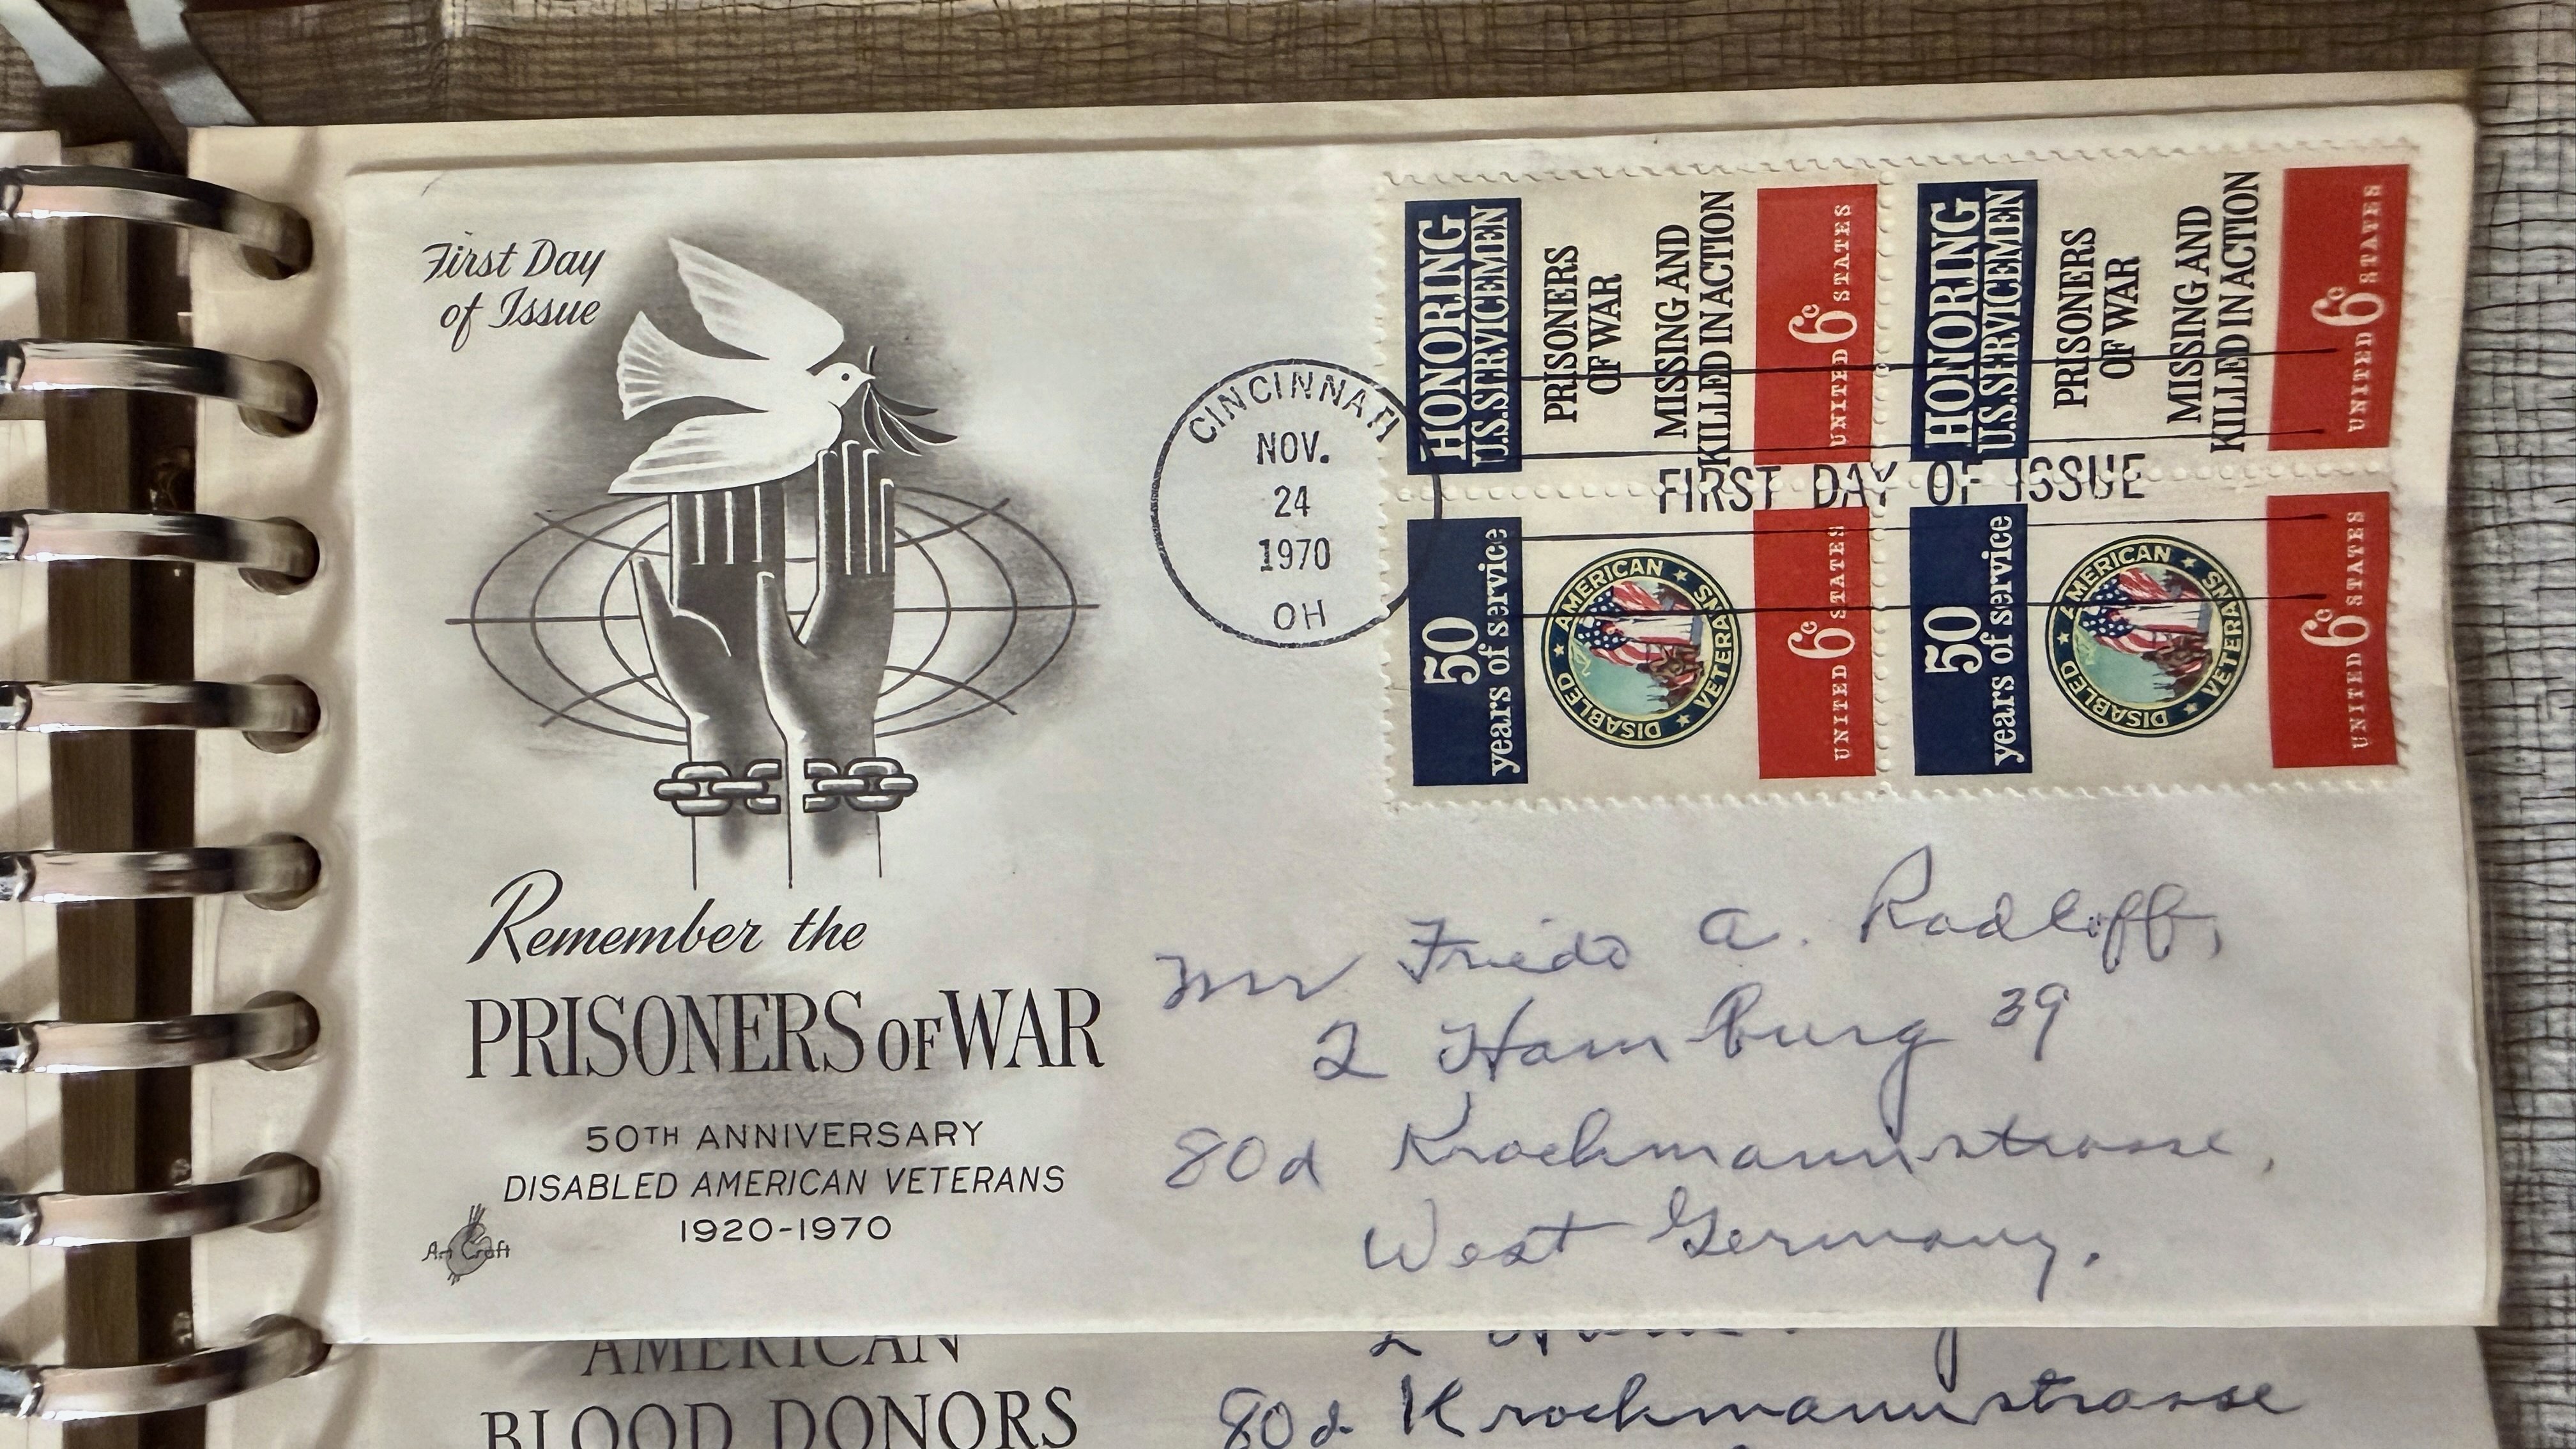 First Day
of Issue
CINCINNATI
NOV.
24
1970
OH
HONORING
U.S.SERVICEMEN
PRISONERS
OF WAR
MISSING AND
KILLED IN ACTION
UNITED 6c STATES
HONORING
U.S.SERVICEMEN
PRISONERS
OF WAR
MISSING AND
KILLED IN ACTION
UNITED 6c STATES
FIRST DAY OF ISSUE
50
years of service
DISABLED ★ AMERICAN ★ VETERANS ★
UNITED 6c STATES
50
years of service
DISABLED ★ AMERICAN ★ VETERANS ★
UNITED 6c STATES
Remember the
PRISONERS OF WAR
50TH ANNIVERSARY
DISABLED AMERICAN VETERANS
1920-1970
Art Craft
Mr Friedo A. Radloff,
2 Hamburg 39
80d Krochmannstrasse,
West Germany.
AMERICAN
BLOOD DONORS
80d Krochmannstrasse